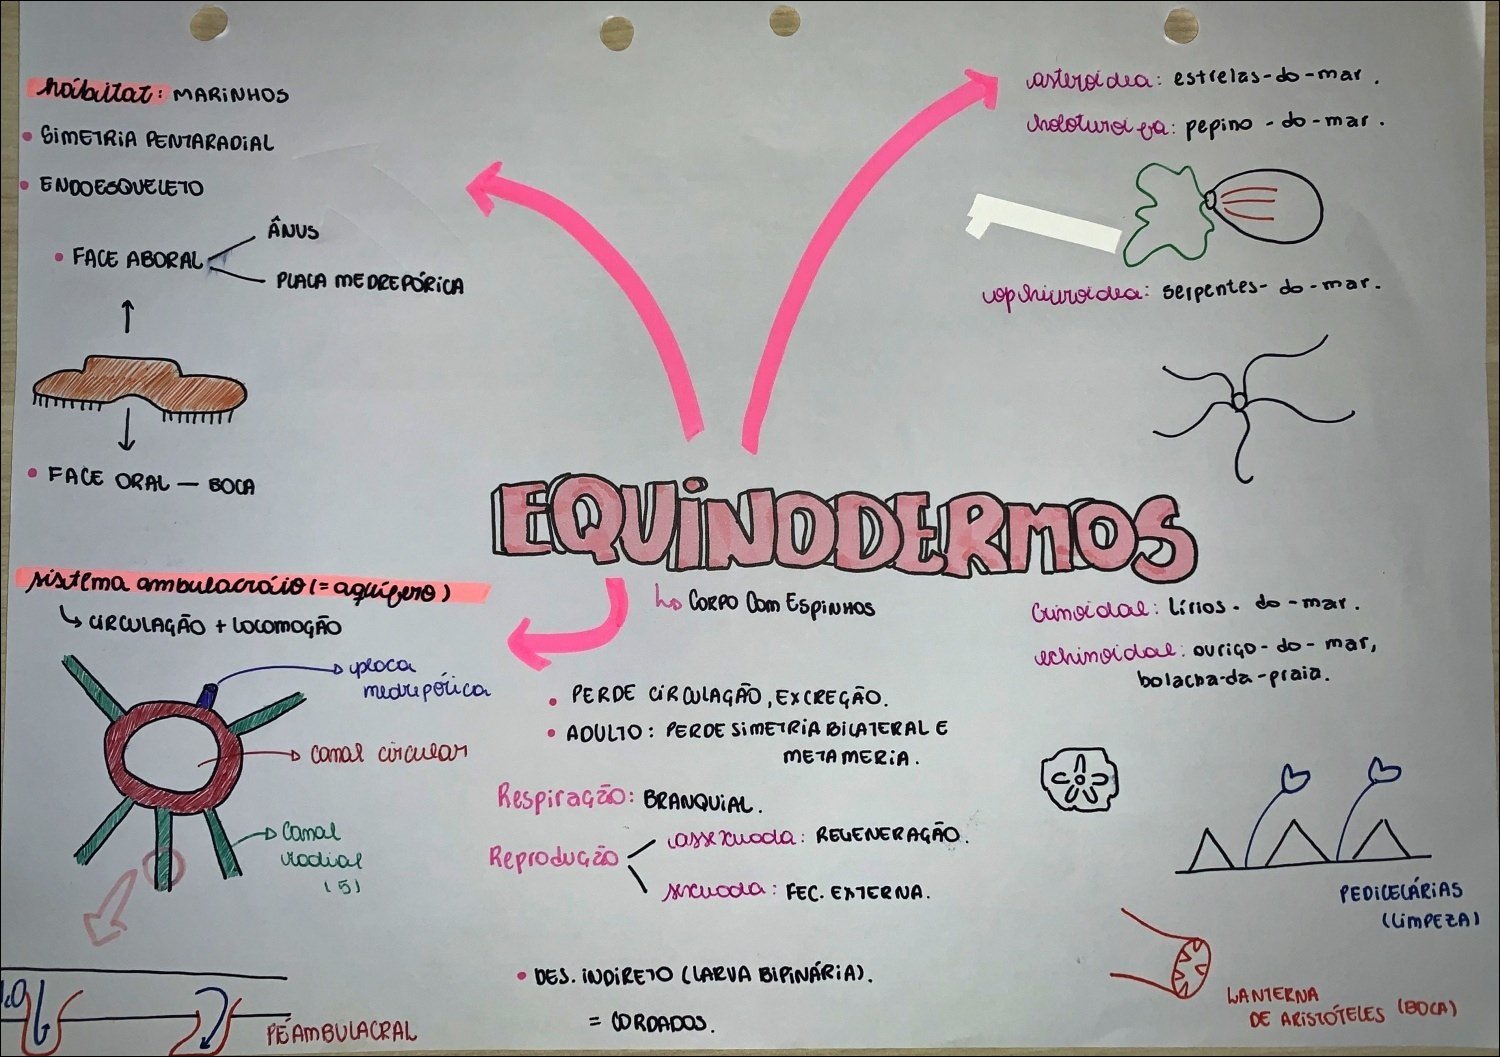 hábitat: MARINHOS
• SIMETRIA PENTARADIAL
• ENDOESQUELETO
• FACE ABORAL
ÂNUS
PLACA MEDREPÓRICA
• FACE ORAL — BOCA
asteroidea: estrelas-do-mar.
holoturoidea: pepino-do-mar.
ophiuroidea: serpentes-do-mar.
EQUINODERMOS
↳ CORPO COM ESPINHOS
sistema ambulacrário (= aquífero)
↳ CIRCULAÇÃO + LOCOMOÇÃO
placa
medrepórica
canal circular
canal
radial
(5)
H₂O
PÉ AMBULACRAL
• PERDE CIRCULAÇÃO, EXCREÇÃO.
• ADULTO: PERDE SIMETRIA BILATERAL E
METAMERIA.
Respiração: BRANQUIAL.
Reprodução
assexuada: REGENERAÇÃO.
sexuada: FEC. EXTERNA.
• DES. INDIRETO (LARVA BIPINÁRIA).
= CORDADOS.
Crinoidae: Lírios-do-mar.
echinoidae: ouriço-do-mar,
bolacha-da-praia.
PEDICELÁRIAS
(LIMPEZA)
LANTERNA
DE ARISTÓTELES (BOCA)